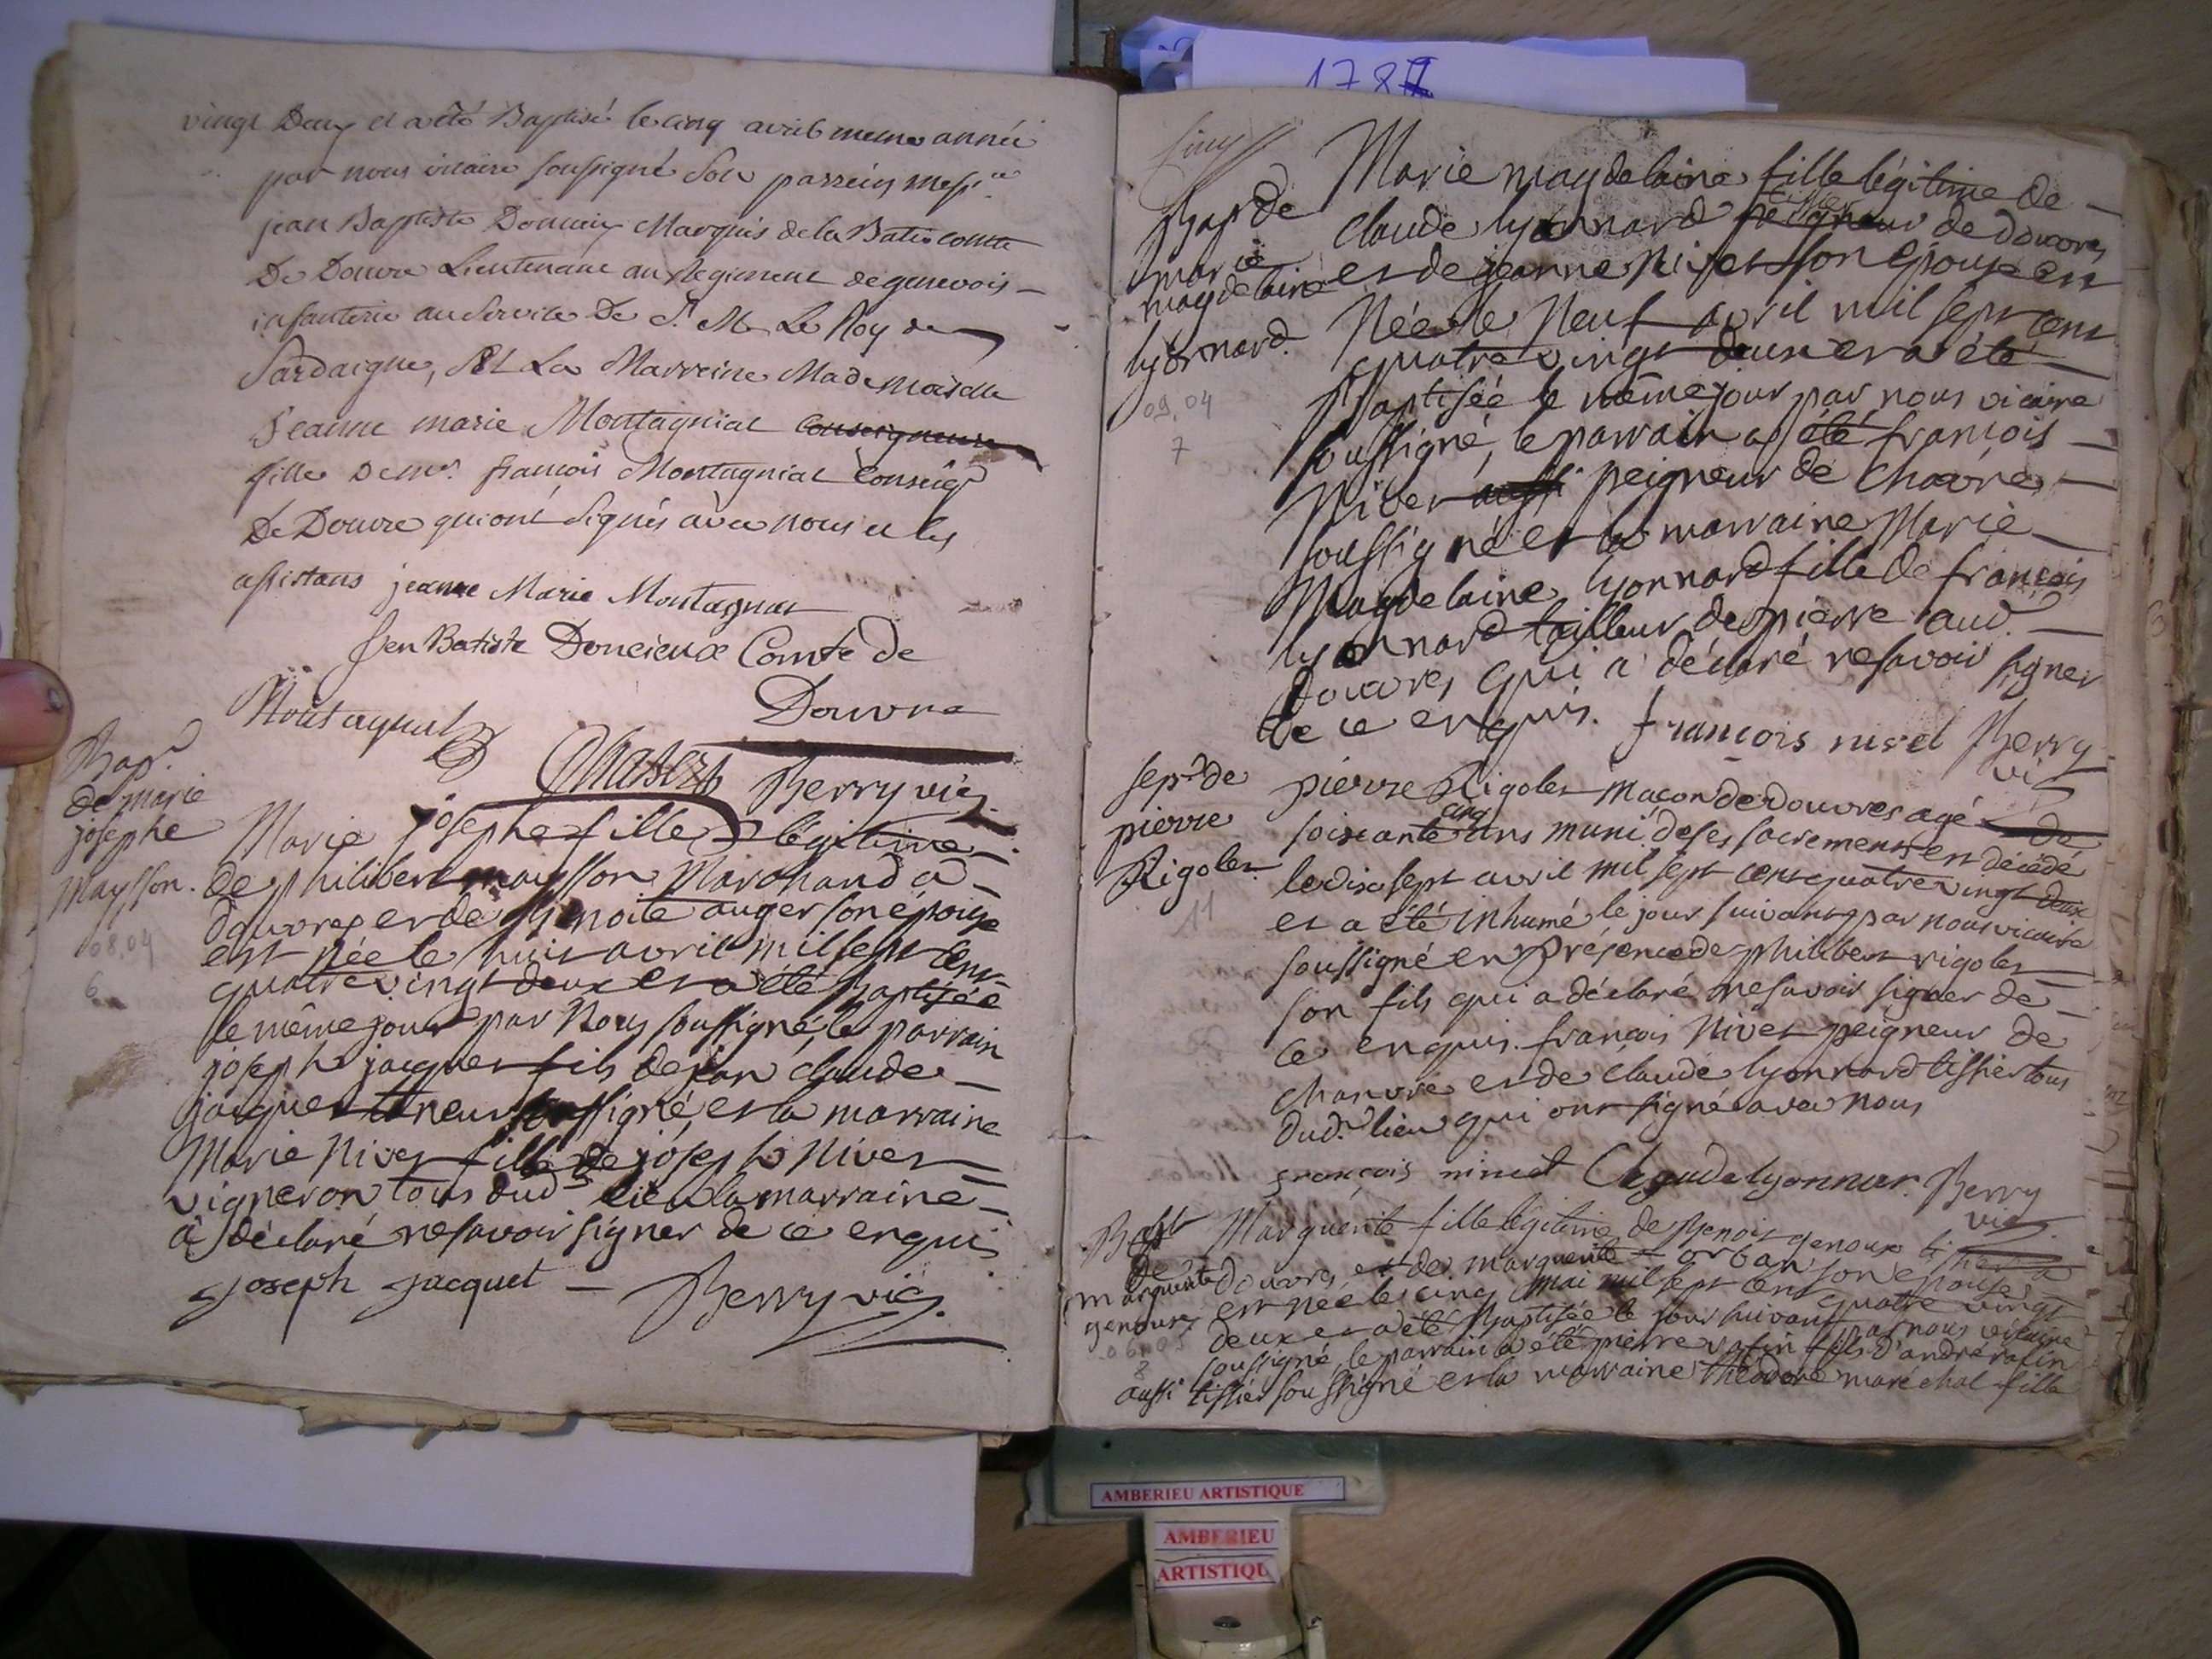 vingt Deux et a été Baptisé le cinq avril meme année
par nous vicaire soussigné Son parrein
jean Baptiste Marquis de la Batie comte
De Douvre Lieutenant au Regiment de genevois
infanterie au Service De S. M. Le Roy de
Sardaigne, Et La Marreine Mademoiselle
Jeanne marie Montagniat
fille De mr. francois Montagniat Conseigr
De Douvre qui ont Signés avec nous et les
assistans jeanne Marie Montagnat
Jen Batiste Doncieux Comte de
Douvre
Montagnat
Berry vic.
Bap.
de marie
josephe
Maysson.
08.04
6
Marie josephe fille légitime
de philibert maysson Marchand à
douvres et de Benoite auger son épouse
est née le huit avril mil sept cent
quatre vingt deux et a été baptisée
le même jour par Nous soussigné, le parrain
joseph jacquet fils de jean claude
jacquet soussigné, et la marraine
Marie Nivet fille de joseph Nivet
vigneron, tous dud. lieu la marraine
a déclaré ne savoir signer de ce enquis
Joseph Jacquet Berry vic.
1787
Bap de
marie
magdelaine
lyonnard.
09.04
7
Marie magdelaine fille légitime de
claude lyonnard de douvres
et de jeanne Nivet son épouse est
Née le Neuf avril mil sept cent
quatre vingt deux et a été
Baptisée le même jour par nous vicaire
soussigné, le parrain a été françois
Nivet aussi peigneur de chanvre
soussigné et la marraine Marie
Magdelaine lyonnard fille de françois
lyonnard tailleur de pierre aud.
douvres qui a déclaré ne savoir signer
de ce enquis. françois nivet Berry
vic.
sep.re de
pierre
Rigolet
11
pierre Rigolet maçon de douvres agé de
cinq
soixante ans muni de ses sacremens est décédé
le dix sept avril mil sept cent quatre vingt deux
et a été inhumé le jour suivant par nous vicaire
soussigné en présence de philibert rigolet
son fils qui a déclaré ne savoir signer de
ce enquis. françois Nivet peigneur de
chanvre et de claude lyonnard tissier tous
dud. lieu qui ont signé avec nous
françois nivet Claude lyonnar. Berry
vic.
Bapt
de
marguerite
genoux
06.05
8
Marguerite fille légitime de Benoit genoux tissier à
douvres, et de marguerite orban son épouse
est née le cinq mai mil sept cent quatre vingt
deux et a été Baptisée le jour suivant par nous vicaire
soussigné, le parrain a été pierre ratin fils d'andré ratin
aussi tissier soussigné et la marraine théodore maréchal fille
AMBERIEU ARTISTIQUE
AMBERIEU
ARTISTIQU